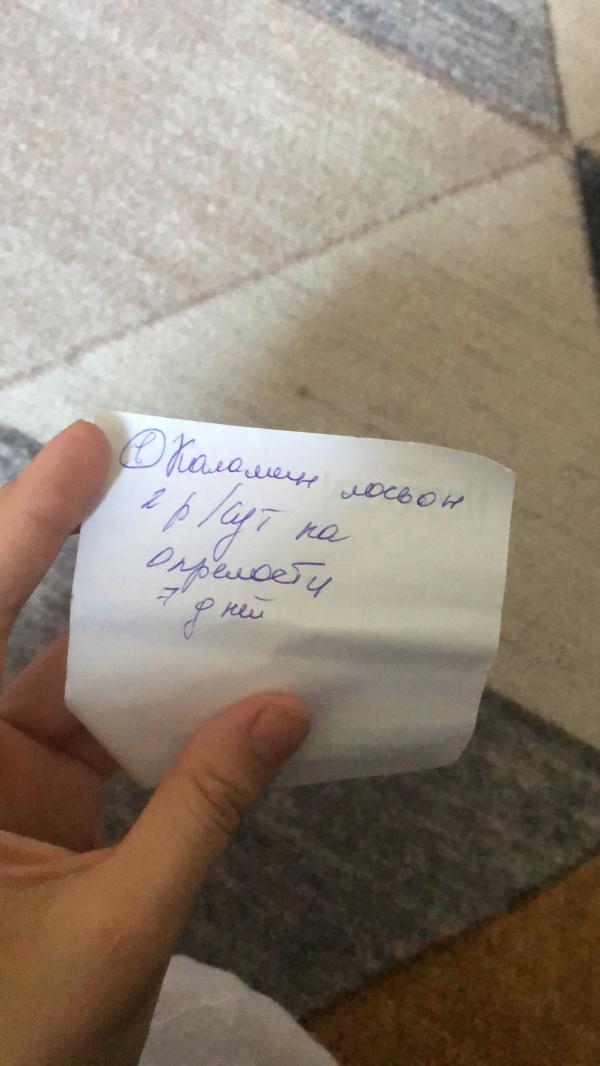 ① Каламин лосьон
2 р/сут на
опрелости
7 дней